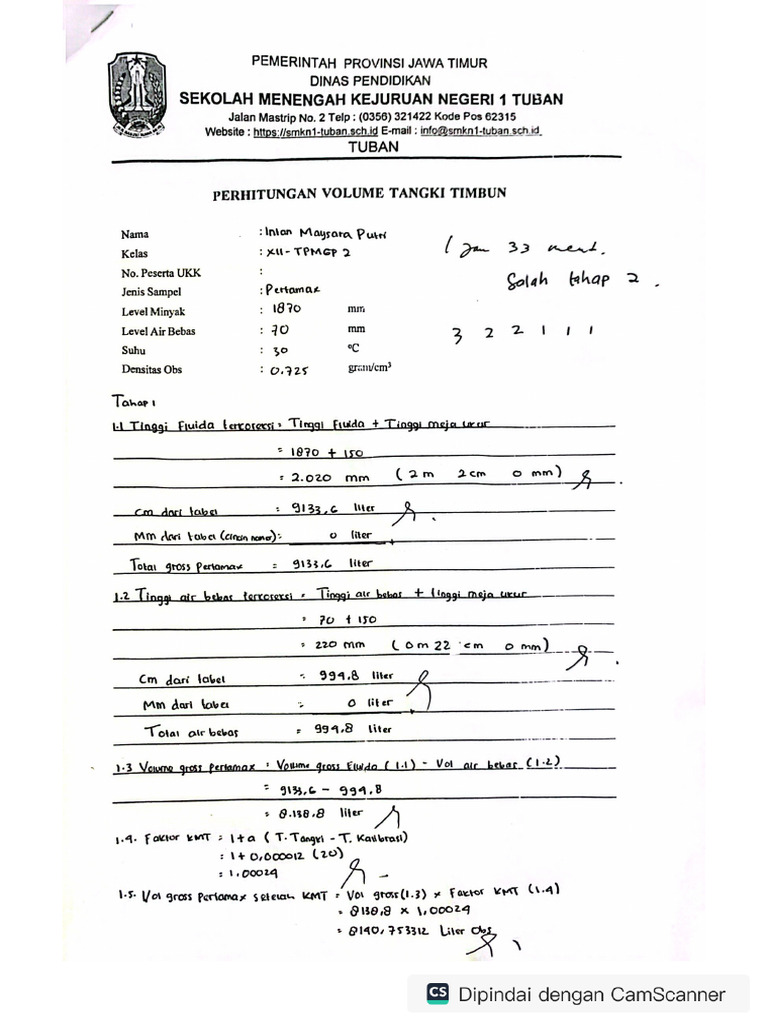 PEMERINTAH PROVINSI JAWA TIMUR
DINAS PENDIDIKAN
SEKOLAH MENENGAH KEJURUAN NEGERI 1 TUBAN
Jalan Mastrip No. 2 Telp : (0356) 321422 Kode Pos 62315
Website : https://smkn1-tuban.sch.id E-mail : info@smkn1-tuban.sch.id
TUBAN
PERHITUNGAN VOLUME TANGKI TIMBUN
Nama : Intan Maysara Putri
Kelas : XII-TPMGP 2
1 jam 33 menit.
No. Peserta UKK :
Salah tahap 2.
Jenis Sampel : Pertamax
Level Minyak : 1870 mm
Level Air Bebas : 70 mm
3 2 2 1 1 1
Suhu : 30 °C
Densitas Obs : 0.725 gram/cm³
Tahap 1
1.1 Tinggi Fluida terkoreksi = Tinggi Fluida + Tinggi meja ukur
= 1870 + 150
= 2.020 mm (2 m 2 cm 0 mm)
Cm dari tabel : 9133,6 liter
Mm dari tabel (cincin nomor) : 0 liter +
Total gross Pertamax = 9133,6 liter
1.2 Tinggi air bebas terkoreksi = Tinggi air bebas + tinggi meja ukur
= 70 + 150
= 220 mm (0 m 22 cm 0 mm)
Cm dari tabel = 994,8 liter
Mm dari tabel = 0 liter +
Total air bebas = 994,8 liter
1.3 Volume gross Pertamax = Volume gross Fluida (1.1) - Vol air bebas (1.2)
= 9133,6 - 994,8
= 8.138,8 liter
1.4. Faktor KMT = 1+a (T. Tangki - T. Kalibrasi)
= 1 + 0,000012 (20)
= 1.00024
1.5. Vol gross Pertamax setelah KMT = Vol gross (1.3) × Faktor KMT (1.4)
= 8138,8 × 1,00024
= 8140,753312 Liter Obs
CS Dipindai dengan CamScanner